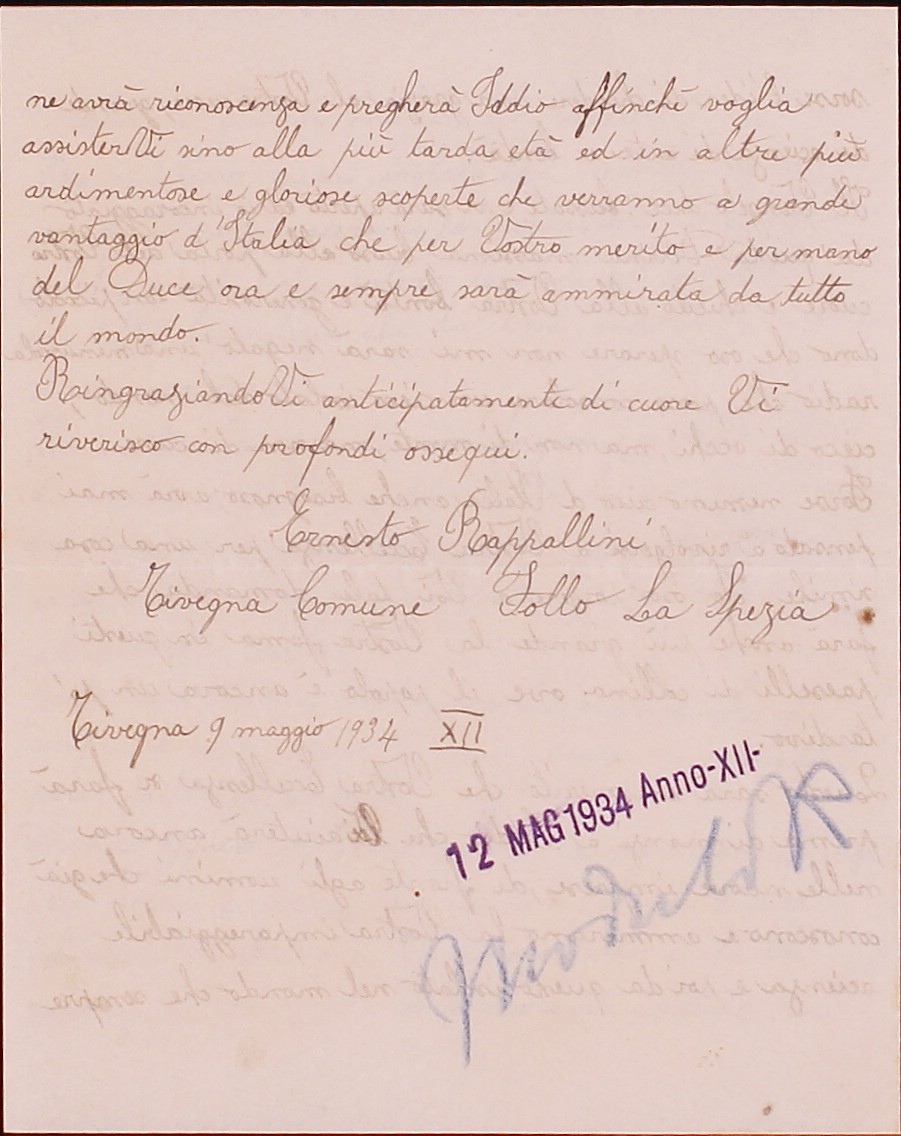 ne avrà riconoscenza e pregherà Iddio affinchè voglia
assisterVi sino alla più tarda età ed in altre più
ardimentose e gloriose scoperte che verranno a grande
vantaggio d'Italia che per Vostro merito e per mano
del Duce ora e sempre sarà ammirata da tutto
il mondo.
RingraziandoVi anticipatamente di cuore Vi
riverisco con profondi ossequi.
Ernesto Rappallini
Tivegna Comune Follo La Spezia
Tivegna 9 maggio 1934 XII
12 MAG 1934 Anno-XII-
Modulo R